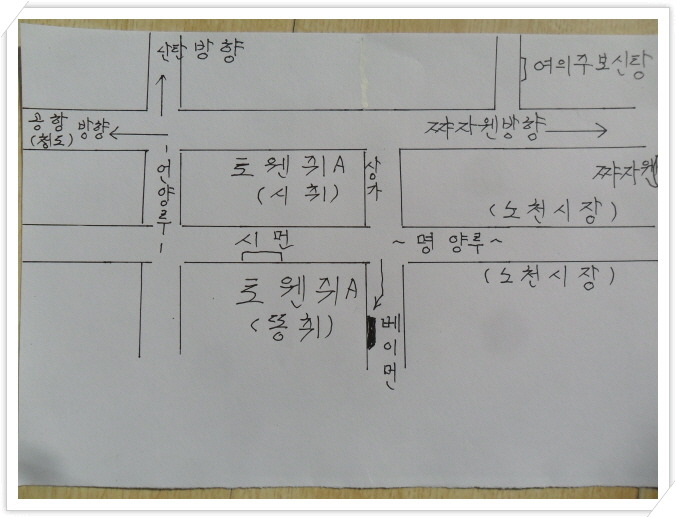 산탄방향
여의주보신탕
공항 방향
(청도)
쨔자웬방향
-언양루-
토웬쥐A
(시취)
상가
쨔자웬
(노천시장)
시먼
~명양루~
토웬쥐A
(똥취)
(노천시장)
베이먼